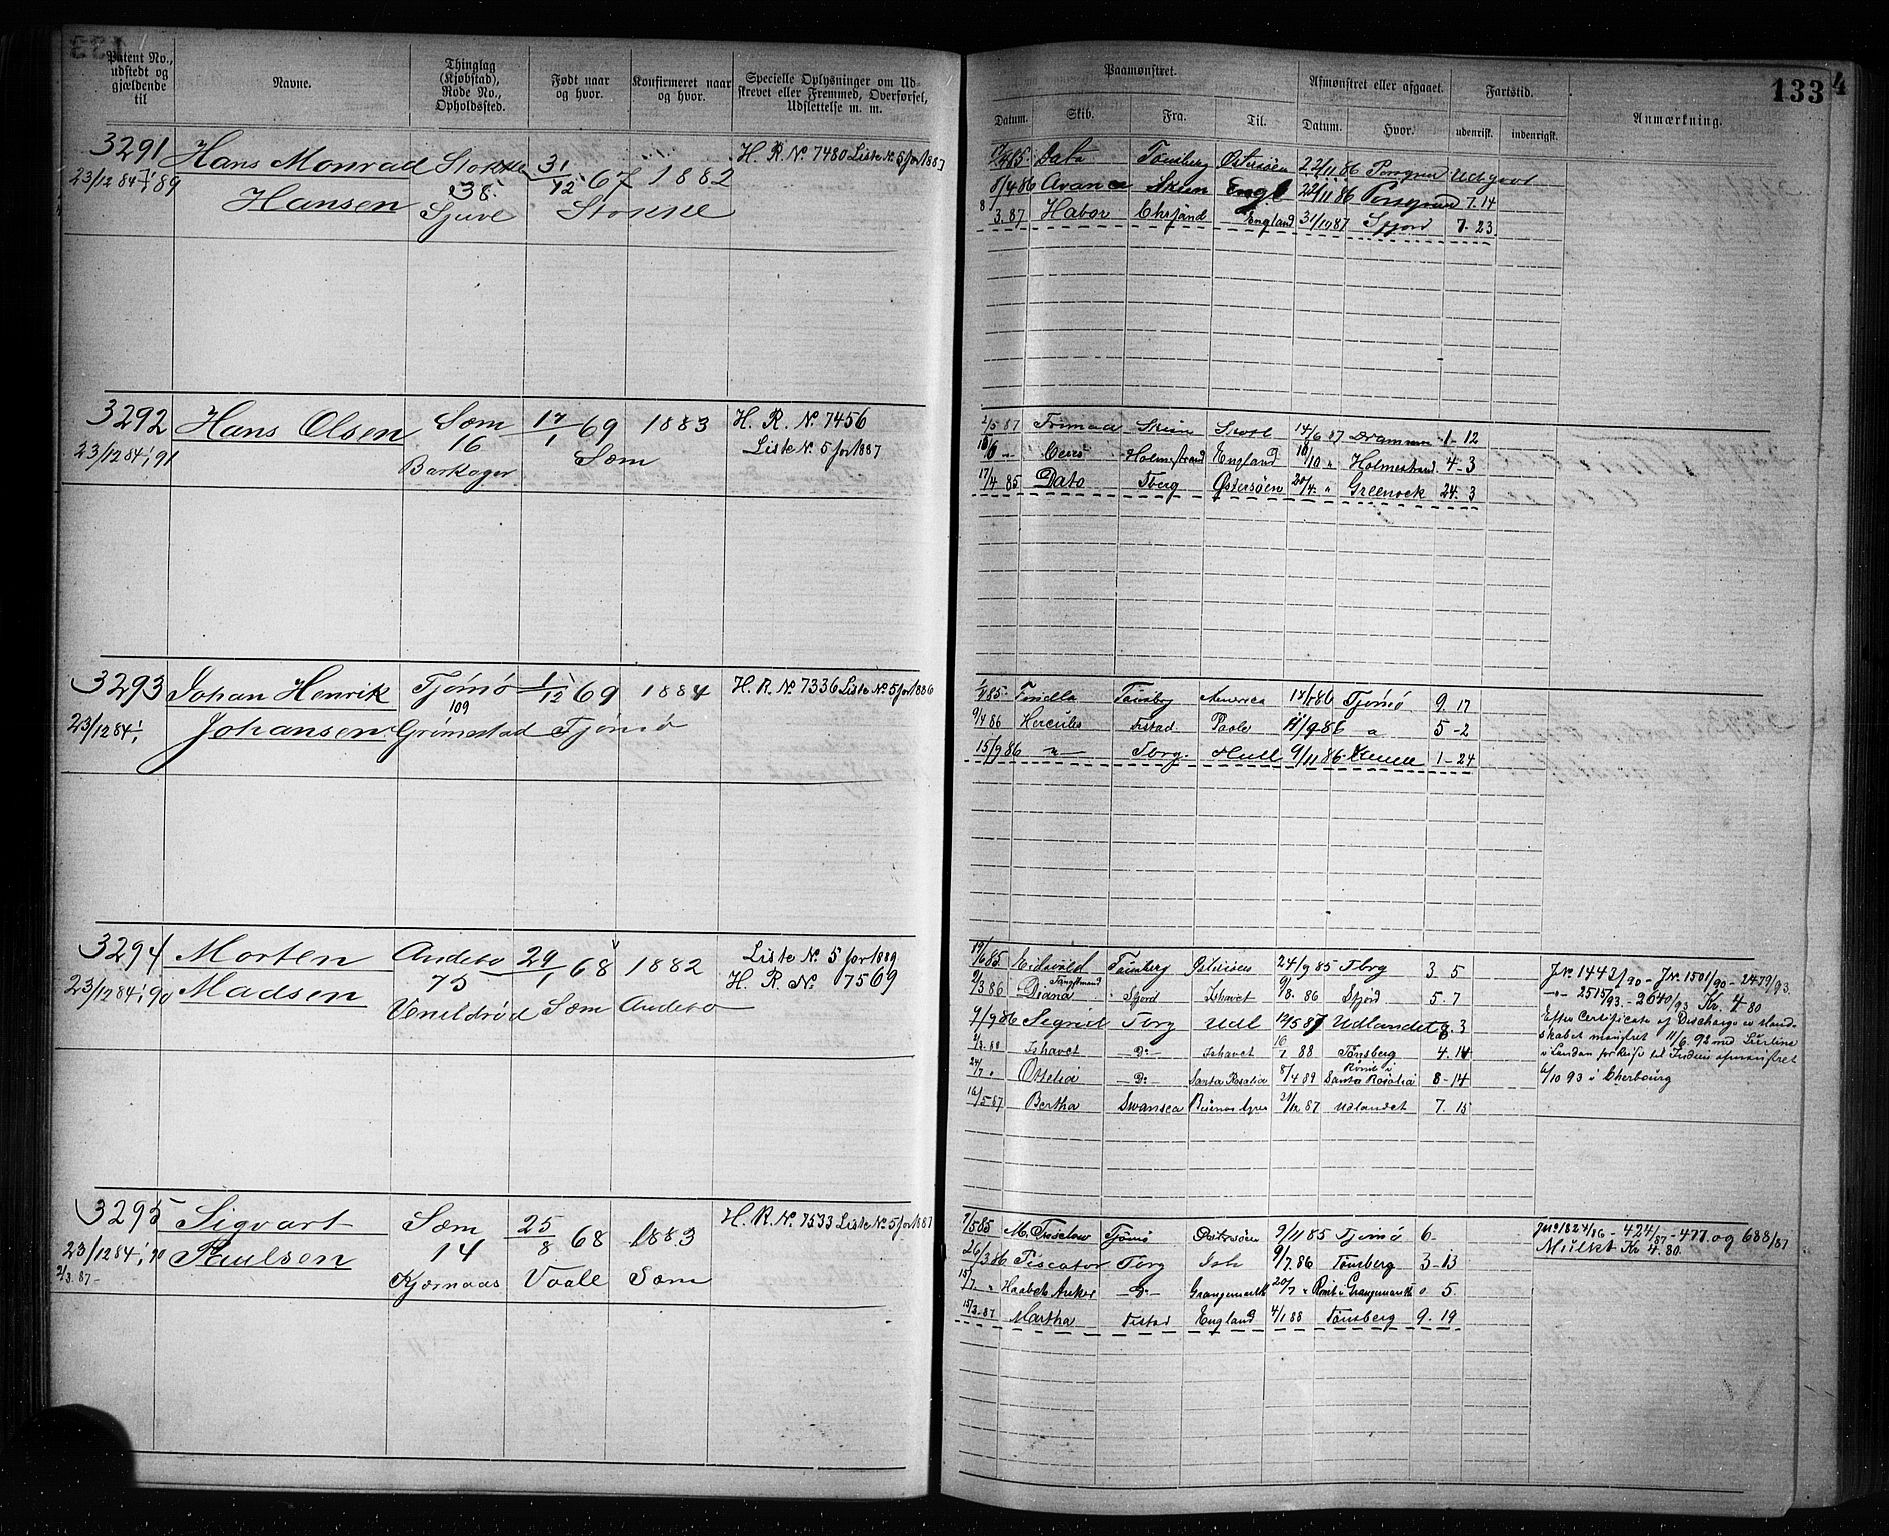 Patent No., udstedt og gjældende til
Navne.
Thinglag (Kjøbstad), Rode No., Opholdssted.
Født naar og hvor.
Konfirmeret naar og hvor.
Specielle Oplysninger om Udskrevet eller Fremmed, Overførsel, Udslettelse m. m.
Paamønstret.
Datum. Skib. Fra. Til.
Afmønstret eller afgaaet.
Datum. Hvor.
Fartstid.
udenrigsk. indenrigsk.
Anmærkning.
133
4
3291 Hans Monrad Stokke 31/12 67 1882 H. R. No 7480 Liste No 5 for 1887
23/12 84 89 Hansen 238. Stokke
Data Tønsberg Østersøen 22/11 86 Porsgrun Udgaat
8/4 86 Skien Engl 22/11 86 Porsgrund 7.14
8/3.87 Habor England 31/10 87 Sfjord 7-23
3292 Hans Olsen Sæm 17/1 69 1883 H. R. No 7456
23/12 84 91 16 Sæm Liste No 5 for 1887
Barkager
/5 87 Skien 14/6 87 Drammen 1-12
Ceres Holmestrand England 18/10 " Holmestrand 4-3
17/4 85 Dato Tberg Østersøen 20/4 " Greenock 24. 3
3293 Johan Henrik Tjømø 1/12 69 1884 H. R. No 7336 Liste No 5 for 1886
23/12 84 Johansen 109 Grimestad Tjømø
Tønsbg America Tjømø 9. 17
9/4 86 Hercules Fistad Poole 11/9 86 " 5-2
15/9 86 " Tbrg. Hull 9/11 86 1-24
3294 Morten Andebo 29/1 68 1882 Liste No 5 for 1889
23/12 84 90 Madsen 75 H. R. No 7569
Venildrød Sæm Andebo
19/6 85 Eidsvold Tønsberg Østersøen 24/9 85 Tbrg 3. 5
9/3 86 Fangstmand Diana Sfjord Ishavet 9/8. 86 Sfjord 5. 7
9/9 86 Sigrid Tbrg Udl Udlandet 8. 3
Ishavet Do Ishavet 88 Tønsberg 4. 14
24/7 " Ottelia Do Santa Rosalia 8/4 89 Rømt i Santa Rosalia 8-14
16/5 87 Bertha Swansea Buenos Ayres 87 Udlandet 7. 15
J No 1442/90 - J No 1501/90 - 2479/93.
- " - 2515/93. - 2640/93 Kr. 4.80
Efter Certificate of Discharge er Mandskabet mønstret 11/6 92 med Lurline
i London for Reise til Indien afmønstret
6/10 93 i Cherbourg
3295 Sigvart Sæm 25/8 68 1883 H. R. No 7533 Liste No 5 for 1887
23/12 84 90 Paulsen 14
2/3. 87 - Kjærnaas Vaale Sæm
7/5 85 Tjømø Østersøen 9/11 85 Tjømø 6-
26/3 86 Piscator Tbrg Ish 9/7. 86 Tønsberg 3-13
15/7 " Haabets Anker Do Grangemouth 20/7 " Rømt i Grangemouth 0 5.
15/3. 87 Martha Fistad England 4/1 88 Tønsberg 9. 19
J No 1824/86 - 424/87 - 477 og 688/87
Mulkt Kr 4.80.